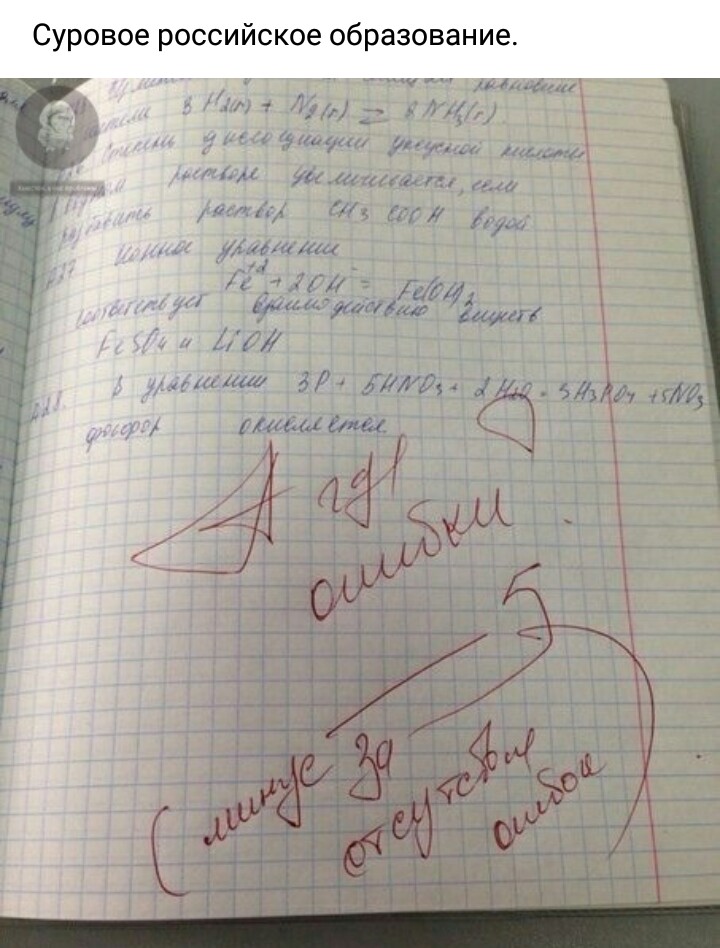 Суровое российское образование.
равновесие
3 H2(г) + N2(г) ⇄ 2 NH3(г).
Степень диссоциации уксусной кислоты
растворе увеличивается, если
разбавить раствор CH3COOH водой
A27 Ионное уравнение
Fe+2 + 2OH- = Fe(OH)2
соответствует взаимодействию веществ
FeSO4 и LiOH
A28. В уравнении 3P + 5HNO3 + 2H2O = 3H3PO4 + 5NO
фосфор окисляется.
А где
ошибки
5
(минус за
отсутствие
ошибок)